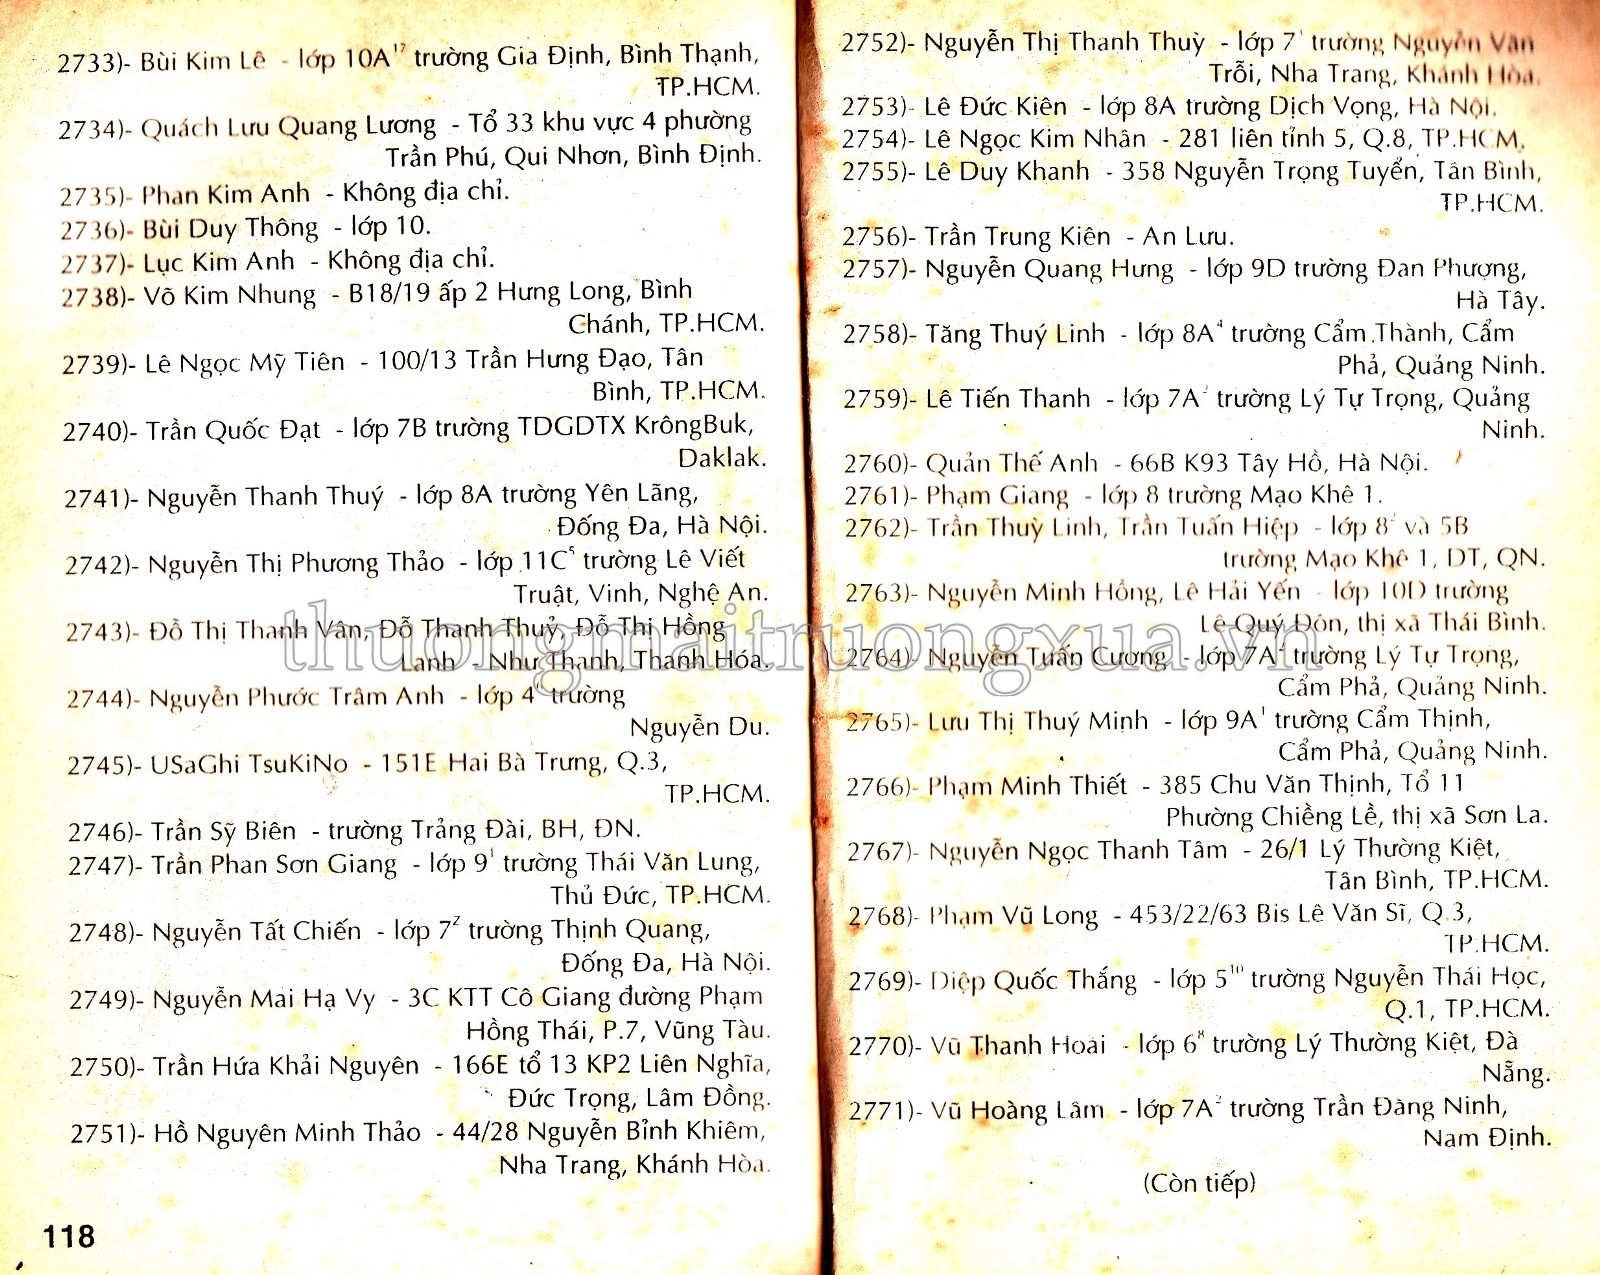 2733)- Bùi Kim Lê - lớp 10A¹⁷ trường Gia Định, Bình Thạnh,
TP.HCM.
2734)- Quách Lưu Quang Lương - Tổ 33 khu vực 4 phường
Trần Phú, Qui Nhơn, Bình Định.
2735)- Phan Kim Anh - Không địa chỉ.
2736)- Bùi Duy Thông - lớp 10.
2737)- Lục Kim Anh - Không địa chỉ.
2738)- Võ Kim Nhung - B18/19 ấp 2 Hưng Long, Bình
Chánh, TP.HCM.
2739)- Lê Ngọc Mỹ Tiên - 100/13 Trần Hưng Đạo, Tân
Bình, TP.HCM.
2740)- Trần Quốc Đạt - lớp 7B trường TDGDTX KrôngBuk,
Daklak.
2741)- Nguyễn Thanh Thuý - lớp 8A trường Yên Lãng,
Đống Đa, Hà Nội.
2742)- Nguyễn Thị Phương Thảo - lớp 11C⁵ trường Lê Viết
Truật, Vinh, Nghệ An.
2743)- Đỗ Thị Thanh Vân, Đỗ Thanh Thuỷ, Đỗ Thị Hồng
Lanh - Như Thanh, Thanh Hóa.
2744)- Nguyễn Phước Trâm Anh - lớp 4¹ trường
Nguyễn Du.
2745)- USaGhi TsuKiNo - 151E Hai Bà Trưng, Q.3,
TP.HCM.
2746)- Trần Sỹ Biên - trường Trảng Đài, BH, ĐN.
2747)- Trần Phan Sơn Giang - lớp 9¹ trường Thái Văn Lung,
Thủ Đức, TP.HCM.
2748)- Nguyễn Tất Chiến - lớp 7² trường Thịnh Quang,
Đống Đa, Hà Nội.
2749)- Nguyễn Mai Hạ Vy - 3C KTT Cô Giang đường Phạm
Hồng Thái, P.7, Vũng Tàu.
2750)- Trần Hứa Khải Nguyên - 166E tổ 13 KP2 Liên Nghĩa,
Đức Trọng, Lâm Đồng.
2751)- Hồ Nguyên Minh Thảo - 44/28 Nguyễn Bỉnh Khiêm,
Nha Trang, Khánh Hòa.
118
2752)- Nguyễn Thị Thanh Thuỳ - lớp 7¹ trường Nguyễn Văn
Trỗi, Nha Trang, Khánh Hòa.
2753)- Lê Đức Kiên - lớp 8A trường Dịch Vọng, Hà Nội.
2754)- Lê Ngọc Kim Nhân - 281 liên tỉnh 5, Q.8, TP.HCM.
2755)- Lê Duy Khanh - 358 Nguyễn Trọng Tuyển, Tân Bình,
TP.HCM.
2756)- Trần Trung Kiên - An Lưu.
2757)- Nguyễn Quang Hưng - lớp 9D trường Đan Phượng,
Hà Tây.
2758)- Tăng Thuý Linh - lớp 8A⁴ trường Cẩm Thành, Cẩm
Phả, Quảng Ninh.
2759)- Lê Tiến Thanh - lớp 7A² trường Lý Tự Trọng, Quảng
Ninh.
2760)- Quản Thế Anh - 66B K93 Tây Hồ, Hà Nội.
2761)- Phạm Giang - lớp 8 trường Mạo Khê 1.
2762)- Trần Thuỳ Linh, Trần Tuấn Hiệp - lớp 8² và 5B
trường Mạo Khê 1, DT, QN.
2763)- Nguyễn Minh Hồng, Lê Hải Yến - lớp 10D trường
Lê Quý Đôn, thị xã Thái Bình.
2764)- Nguyễn Tuấn Cương - lớp 7A² trường Lý Tự Trọng,
Cẩm Phả, Quảng Ninh.
2765)- Lưu Thị Thuý Minh - lớp 9A¹ trường Cẩm Thịnh,
Cẩm Phả, Quảng Ninh.
2766)- Phạm Minh Thiết - 385 Chu Văn Thịnh, Tổ 11
Phường Chiềng Lề, thị xã Sơn La.
2767)- Nguyễn Ngọc Thanh Tâm - 26/1 Lý Thường Kiệt,
Tân Bình, TP.HCM.
2768)- Phạm Vũ Long - 453/22/63 Bis Lê Văn Sĩ, Q.3,
TP.HCM.
2769)- Diệp Quốc Thắng - lớp 5¹⁰ trường Nguyễn Thái Học,
Q.1, TP.HCM.
2770)- Vũ Thanh Hoài - lớp 6⁸ trường Lý Thường Kiệt, Đà
Nẵng.
2771)- Vũ Hoàng Lâm - lớp 7A² trường Trần Đăng Ninh,
Nam Định.
(Còn tiếp)
thuongmaitruongxua.vn